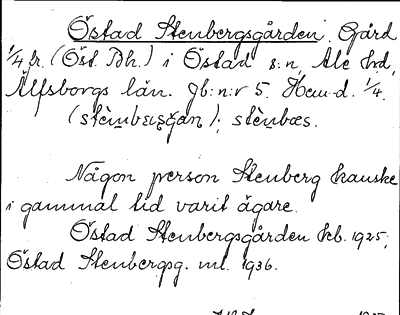 Östad Stenbergsgården. Gård
1/4 fr. (Öst. Bh.) i Östad s:n, Ale hd,
Älfsborgs län. Jb:n:r 5. Hem.d. 1/4.
stènbæs.
Någon person Stenberg kanske
i gammal tid varit ägare.
Östad Stenbergsgården kb. 1925;
Östad Stenbergsg. ml. 1936.